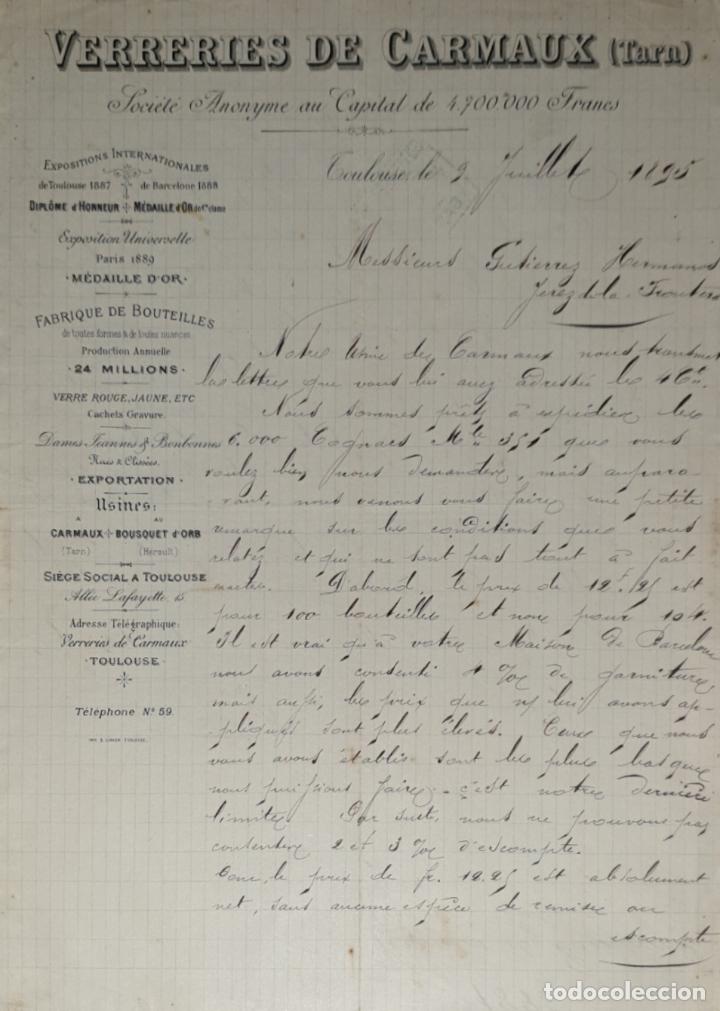 VERRERIES DE CARMAUX (Tarn)
Société Anonyme au Capital de 4.900.000 Francs
EXPOSITIONS INTERNATIONALES
de Toulouse 1887 de Barcelone 1888
DIPLÔME d'HONNEUR MÉDAILLE d'OR de 1re classe
Exposition Universelle
Paris 1889
MÉDAILLE D'OR
FABRIQUE DE BOUTEILLES
de toutes formes & de toutes nuances
Production Annuelle
24 MILLIONS
VERRE ROUGE, JAUNE, ETC
Cachets Gravure.
Dames Jeannes & Bonbonnes
Nues & Clissées.
EXPORTATION
Usines:
A AU
CARMAUX BOUSQUET D'ORB
(Tarn) (Hérault)
SIÈGE SOCIAL A TOULOUSE
Allée Lafayette 15
Adresse Télégraphique:
Verreries de Carmaux
TOULOUSE
Téléphone No 59.
Toulouse, le 9 Juillet 1895
Messieurs Gutierrez Hermanos
Jerez de la Frontera
Notre Usine de Carmaux nous transmet
les lettres que vous lui avez adressée les
Nous sommes prêts à expédier les
6.000 Cognacs Mle 351 que vous
voulez bien nous demander, mais aupara-
vant, nous venons vous faire une petite
remarque sur les conditions que vous
relatez et qui ne sont pas tout à fait
exactes. D'abord, le prix de 12f.25 est
pour 100 bouteilles et non pour 104.
Il est vrai qu'à votre Maison de Barcelone
nous avons consenti 4 % de garniture,
mais aussi, les prix que n/ lui avons ap-
pliqués sont plus élevés. Ceux que nous
vous avons établis sont les plus bas que
nous puissions faire - c'est notre dernière
limite. Par suite, nous ne pouvons pas
consentir 2 et 3 % d'escompte.
Donc, le prix de fr. 12.25 est absolument
net, sans aucune espèce de remise ou
escompte
todocoleccion.net